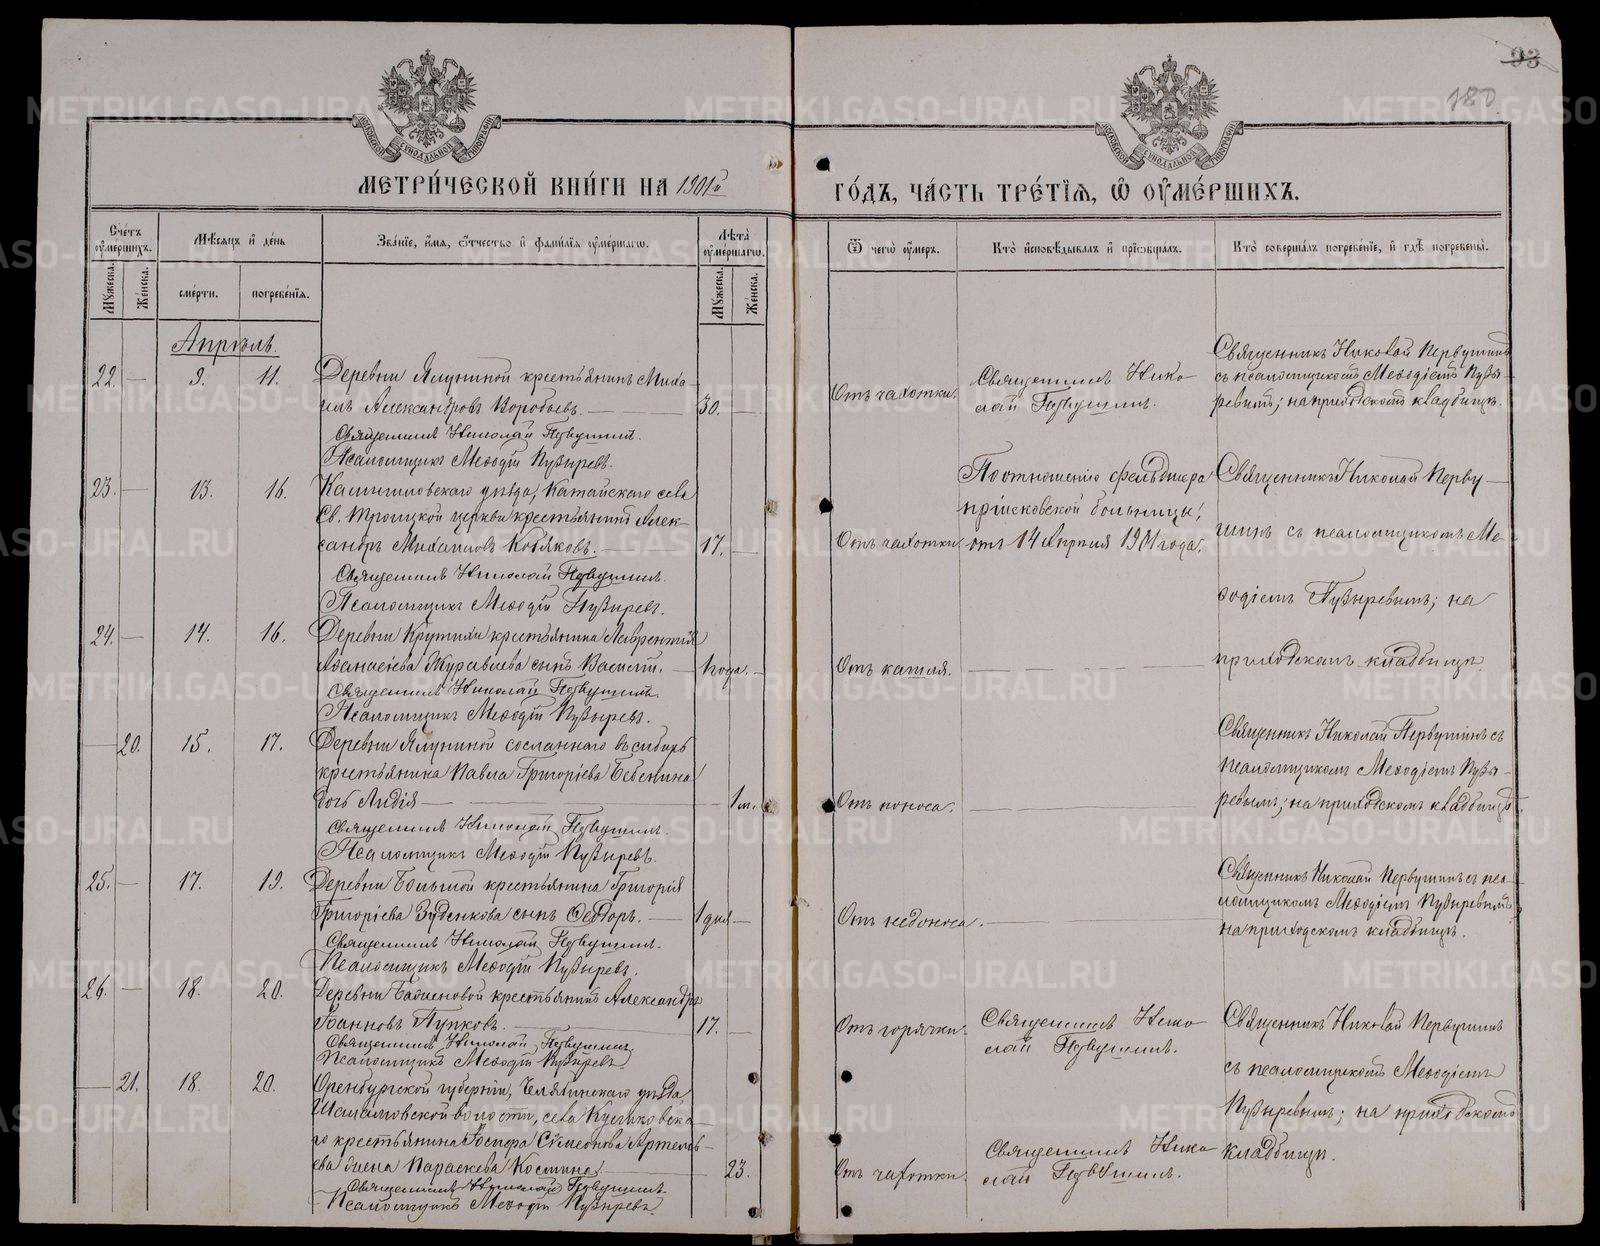 93
180
МЕТРИ́ЧЕСКОЙ КНИ́ГИ НА 1901й
ГО́ДЪ, ЧА́СТЬ ТРЕ́ТІѦ, Ѿ ОУ҆МЕ́РШИХЪ.
Сче́тъ оу҆ме́ршихъ.
Мѣсѧцъ и҆ де́нь
Зва́нїе, и҆́мѧ, ѻ҆́тчество и҆ фами́лїѧ оу҆ме́ршагѡ.
Лѣ́та оу҆ме́ршагѡ.
Ѿ чегѡ̀ оу҆́меръ.
Кто̀ и҆сповѣ́дывалъ и҆ прїѡбща́лъ.
Кто̀ соверша́лъ погребе́нїе, и҆ гдѣ̀ погребены̀.
Мꙋ́жеска.
Же́нска.
сме́рти.
погребе́нїѧ.
Мꙋ́жеска.
Же́нска.
Апрѣль.
22. — 9. 11. Деревни Ялуниной крестьянинъ Миха-
илъ Александровъ Воробьевъ. — 30. —
Священникъ Николай Первушинъ.
Псаломщикъ Меѳодій Пузыревъ.
Отъ чахотки.
Священникъ Нико-
лай Первушинъ.
Священникъ Николай Первушинъ
съ псаломщикомъ Меѳодіемъ Пузы-
ревымъ; на приходскомъ кладбищѣ.
23. — 13. 16. Камышловскаго уѣзда, Катайскаго села
Св. Троицкой церкви крестьянинъ Алек-
сандръ Михаиловъ Кобяковъ. — 17. —
Священникъ Николай Первушинъ.
Псаломщикъ Меѳодій Пузыревъ.
Отъ чахотки.
По отношенію фельдшера
пріисковской больницы,
отъ 14 Апрѣля 1901 года.
Священникъ Николай Перву-
шинъ съ псаломщикомъ Ме-
ѳодіемъ Пузыревымъ; на
приходскомъ кладбищѣ
24. — 14. 16. Деревни Крутихи крестьянина Лаврентія
Аѳанасіева Журавлева сынъ Василій. — 1 года. —
Священникъ Николай Первушинъ.
Псаломщикъ Меѳодій Пузыревъ.
Отъ кашля. —
— 20. 15. 17. Деревни Ялуниной сосланнаго въ сибирь
крестьянина Павла Григоріева Бебенина
дочь Лидія — 1 м.
Священникъ Николай Первушинъ.
Псаломщикъ Меѳодій Пузыревъ.
Отъ поноса. —
Священникъ Николай Первушинъ съ
псаломщикомъ Меѳодіемъ Пузы-
ревымъ; на приходскомъ кладбищѣ.
25. — 17. 19. Деревни Большой крестьянина Григорія
Григоріева Зуденкова сынъ Ѳеодоръ. — 1 дня —
Священникъ Николай Первушинъ.
Псаломщикъ Меѳодій Пузыревъ.
Отъ недоноса. —
Священникъ Николай Первушинъ съ пса-
ломщикомъ Меѳодіемъ Пузыревымъ,
на приходскомъ кладбищѣ.
26. — 18. 20. Деревни крестьянинъ Александръ
Іоанновъ Пупковъ. — 17. —
Священникъ Николай Первушинъ.
Псаломщикъ Меѳодій Пузыревъ.
Отъ горячки.
Священникъ Нико-
лай Первушинъ.
Священникъ Николай Первушинъ
съ псаломщикомъ Меѳодіемъ
Пузыревымъ; на приходскомъ
кладбищѣ.
— 21. 18. 20. Оренбургской губерніи, Челябинскаго уѣзда
волости, села Куликовска-
го крестьянина Симеонова Артемь-
ева жена Параскева Космина. — 23.
Священникъ Николай Первушинъ.
Псаломщикъ Меѳодій Пузыревъ.
Отъ чахотки.
Священникъ Нико-
лай Первушинъ.
METRIKI.GASO-URAL.RU